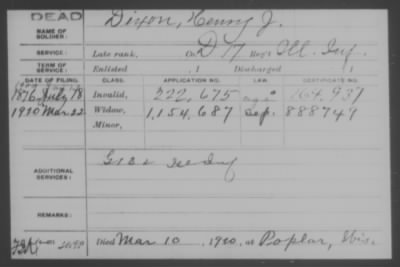 DEAD
Dixon, Henry J.
NAME OF SOLDIER:
SERVICE: Late rank, Co. D 7 Reg't Ill. Inf.
TERM OF SERVICE: Enlisted , 1 Discharged , 1
DATE OF FILING. CLASS. APPLICATION NO. LAW. CERTIFICATE NO.
1876 July 18 Invalid, 222,675 164,937
1920 Mar 22 Widow, 1,154,687 Sep. 888749
Minor,
ADDITIONAL SERVICES:
REMARKS:
Died Mar 10, 1920, at Poplar, Wis.